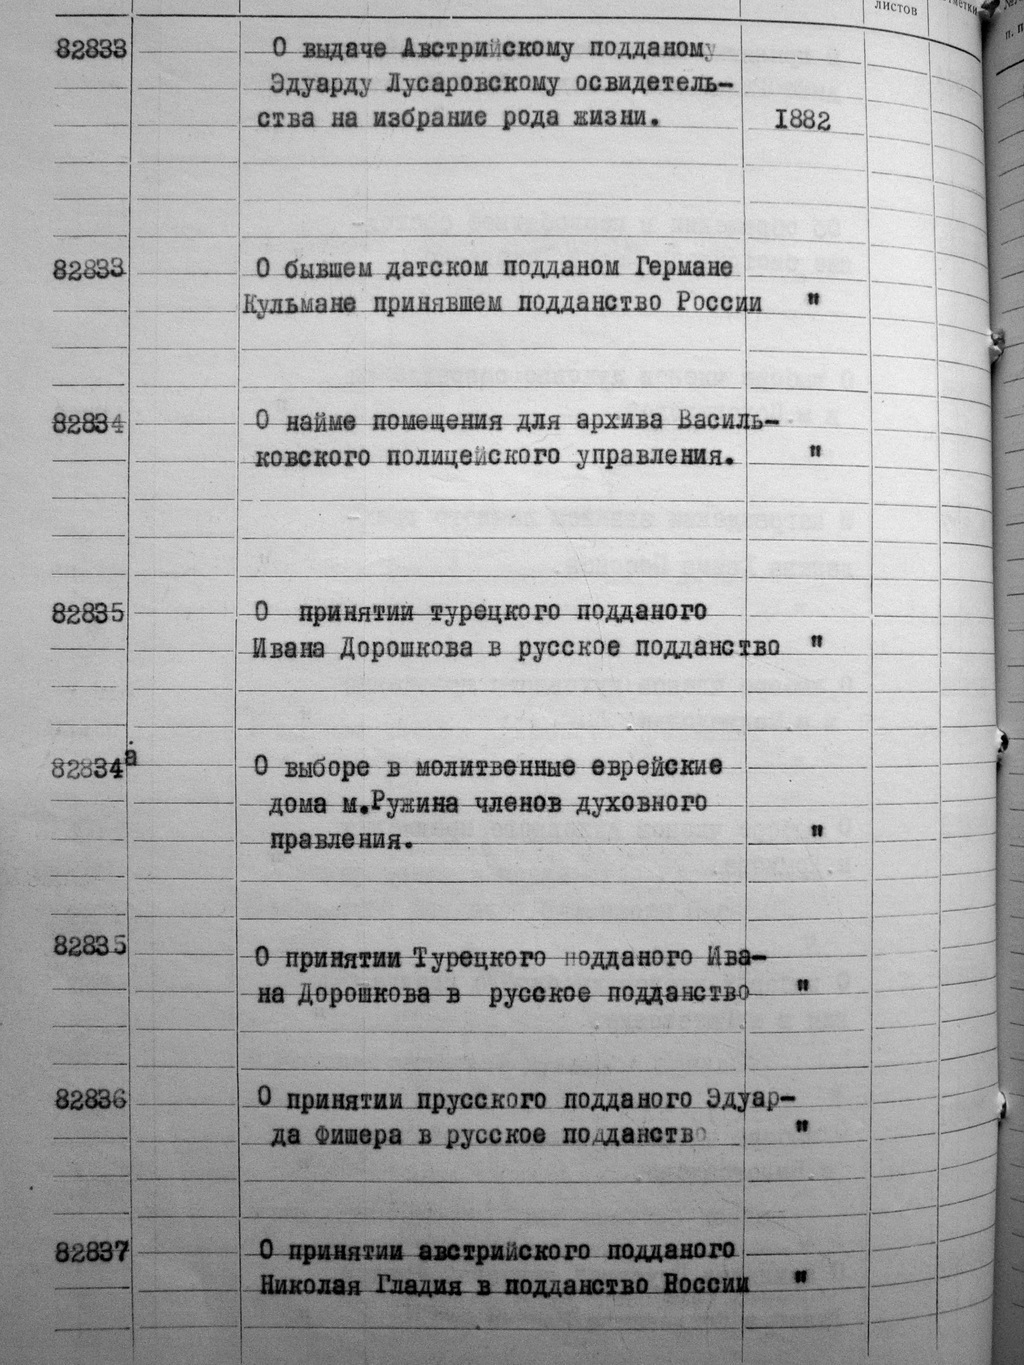 листов
82833 О выдаче Австрийскому подданому
Эдуарду Лусаровскому освидетель-
ства на избрание рода жизни. 1882
82833 О бывшем датском подданом Германе
Кульмане принявшем подданство России "
82834 О найме помещения для архива Василь-
ковского полицейского управления. "
82835 О принятии турецкого подданого
Ивана Дорошкова в русское подданство "
82834а О выборе в молитвенные еврейские
дома м.Ружина членов духовного
правления. "
82835 О принятии Турецкого подданого Ива-
на Дорошкова в русское подданство "
82836 О принятии прусского подданого Эдуар-
да Фишера в русское подданство "
82837 О принятии австрийского подданого
Николая Гладия в подданство Носсии "